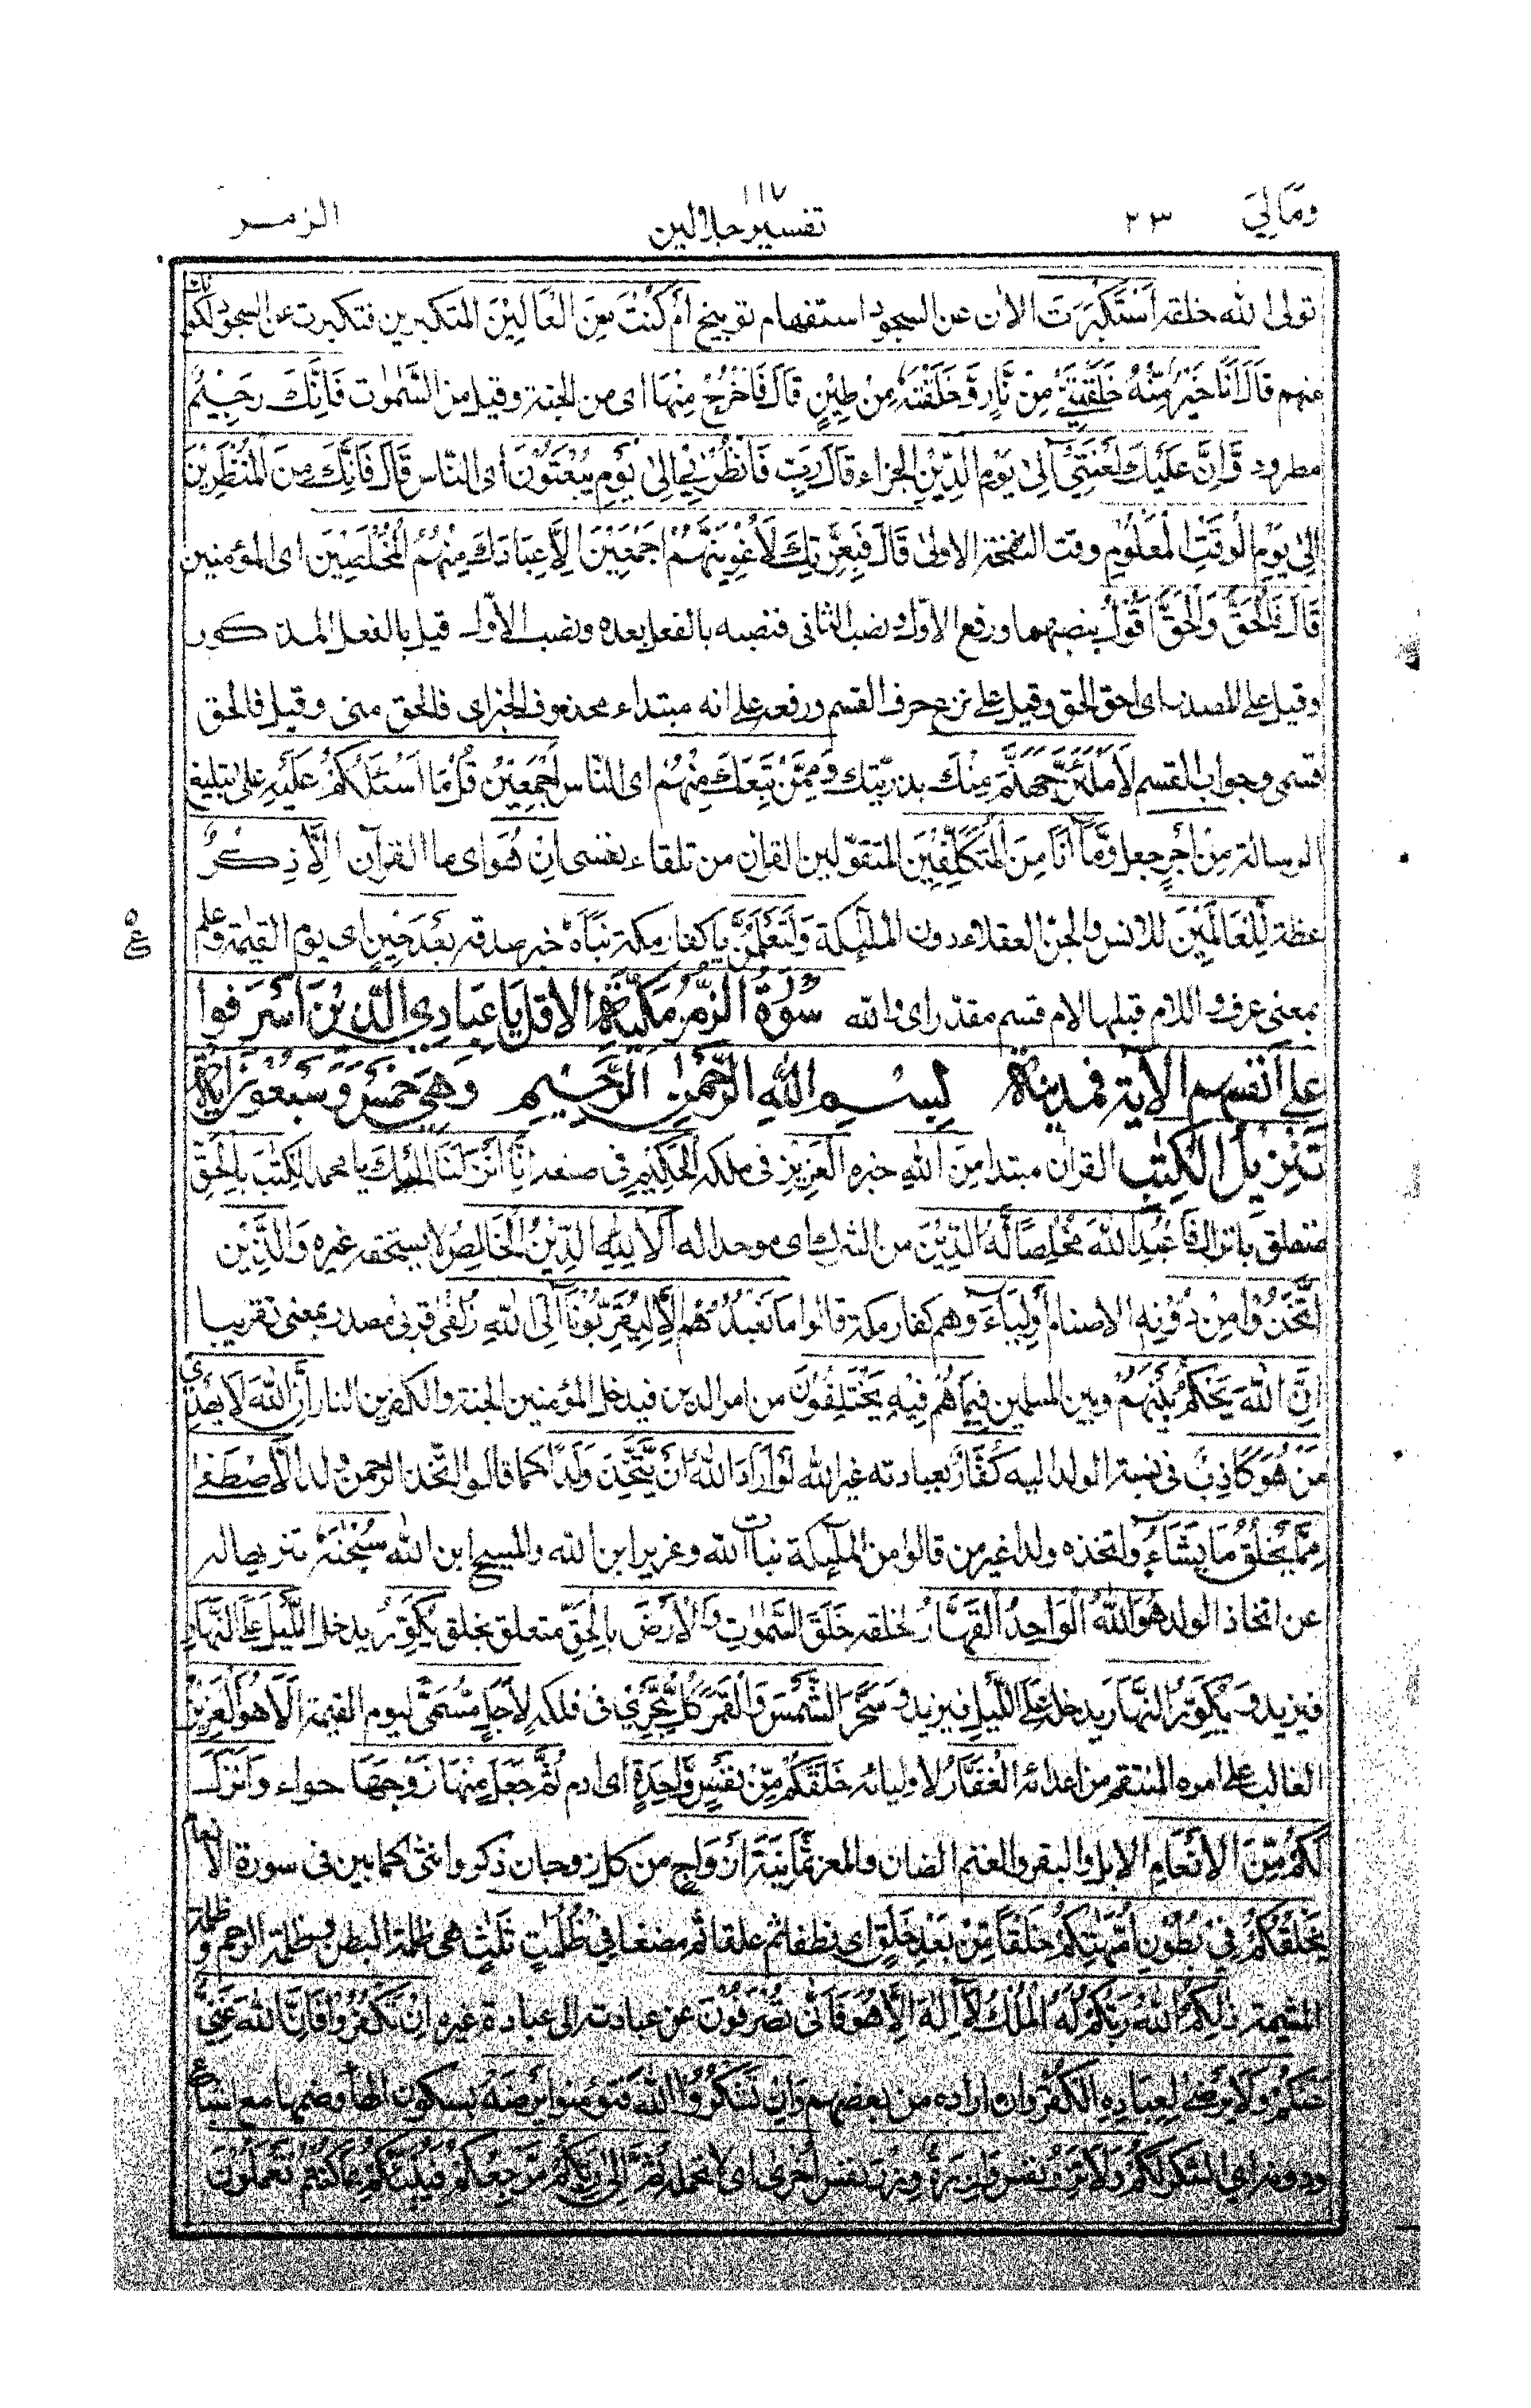 ١١٧
ومالي ٢٣ تفسير جلالين الزمر
تولى الله خلقه أَسْتَكْبَرْتَ الان عن السجود استفهام توبيخ أَمْ كُنْتَ مِنَ الْعَالِيْنَ المتكبرين فتكبرت عن السجود لكونك
منهم قَالَ أَنَا خَيْرٌ مِّنْهُ خَلَقْتَنِيْ مِنْ نَّارٍ وَّخَلَقْتَهٗ مِنْ طِيْنٍ قَالَ فَاخْرُجْ مِنْهَا اى من الجنة وقيل من السَّمٰوٰت فَاِنَّكَ رَجِيْمٌ
مطرود وَّاِنَّ عَلَيْكَ لَعْنَتِيْٓ اِلٰى يَوْمِ الدِّيْنِ الجزاء قَالَ رَبِّ فَاَنْظِرْنِيْ اِلٰى يَوْمِ يُبْعَثُوْنَ اى الناس قَالَ فَاِنَّكَ مِنَ الْمُنْظَرِيْنَ
اِلٰى يَوْمِ الْوَقْتِ الْمَعْلُوْمِ وقت النفخة الاولى قَالَ فَبِعِزَّتِكَ لَاُغْوِيَنَّهُمْ اَجْمَعِيْنَ اِلَّا عِبَادَكَ مِنْهُمُ الْمُخْلَصِيْنَ اى المؤمنين
قَالَ فَالْحَقُّ وَالْحَقَّ اَقُوْلُ بنصبهما ورفع الاوّل ونصب الثانى فنصبه بالفعل بعده ونصب الاوّل قيل بالفعل المذكور
وقيل على المصدر اى احق الحق وقيل على نزع حرف القسم ورفعه على انه مبتداء محذوف الخبر اى فالحق منى وقيل فالحق
قسمى وجواب القسم لَاَمْلَئَنَّ جَهَنَّمَ مِنْكَ بذريّتك وَمِمَّنْ تَبِعَكَ مِنْهُمْ اى الناس اَجْمَعِيْنَ قُلْ مَا اَسْئَلُكُمْ عَلَيْهِ على تبليغ
الرسالة مِنْ اَجْرٍ جعل وَّمَآ اَنَا مِنَ الْمُتَكَلِّفِيْنَ المتقوّلين القران من تلقاء نفسى اِنْ هُوَ اى ما القرآن اِلَّا ذِكْرٌ
عظة لِّلْعَالَمِيْنَ للانس والجن العقلاء دون الملٰئكة وَلَتَعْلَمُنَّ يا كفار مكة نَبَاَهٗ خبر صدقه بَعْدَ حِيْنٍ اى يوم القيٰمة وعلم
بمعنى عرف واللام قبلها لام قسم مقدر اى والله سُوْرَةُ الزُّمَرِ مَكِّيَّةٌ اِلَّا قُلْ يَا عِبَادِيَ الَّذِيْنَ اَسْرَفُوا
عَلٰى اَنْفُسِهِمُ الْاٰيَة فَمَدَنِيَّة بِسْمِ اللّٰهِ الرَّحْمٰنِ الرَّحِيْمِ وَهِيَ خَمْسٌ وَّسَبْعُوْنَ اٰيَةً
تَنْزِيْلُ الْكِتٰبِ القران مبتدا مِنَ اللّٰهِ خبره الْعَزِيْزِ فى ملكه الْحَكِيْمِ فى صنعه اِنَّا اَنْزَلْنَا اِلَيْكَ يا محمد الْكِتٰبَ بِالْحَقِّ
متعلق بانزل فَاعْبُدِ اللّٰهَ مُخْلِصًا لَّهُ الدِّيْنَ من الشرك اى موحدا له اَلَا لِلّٰهِ الدِّيْنُ الْخَالِصُ لا يستحقه غيره وَالَّذِيْنَ
اتَّخَذُوْا مِنْ دُوْنِهٖ الاصنام اَوْلِيَآءَ وهم كفار مكة قالوا مَا نَعْبُدُهُمْ اِلَّا لِيُقَرِّبُوْنَا اِلَى اللّٰهِ زُلْفٰى قربى مصدر بمعنى تقريبا
اِنَّ اللّٰهَ يَحْكُمُ بَيْنَهُمْ وبين المسلمين فِيْمَا هُمْ فِيْهِ يَخْتَلِفُوْنَ من امر الدين فيدخل المؤمنين الجنة والكٰفرين النار اِنَّ اللّٰهَ لَا يَهْدِيْ
مَنْ هُوَ كَاذِبٌ فى نسبة الولد اليه كَفَّارٌ بعبادته غير الله لَوْ اَرَادَ اللّٰهُ اَنْ يَّتَّخِذَ وَلَدًا كما قالوا اتّخذ الرحمن ولدا لَّاصْطَفٰى
مِمَّا يَخْلُقُ مَا يَشَآءُ واتخذه ولدا غير من قالوا من الملٰئكة بنات الله وعزير ابن الله والمسيح ابن الله سُبْحٰنَهٗ تنزيها له
عن اتخاذ الولد هُوَ اللّٰهُ الْوَاحِدُ الْقَهَّارُ لخلقه خَلَقَ السَّمٰوٰتِ وَالْاَرْضَ بِالْحَقِّ متعلق بخلق يُكَوِّرُ يدخل الَّيْلَ عَلَى النَّهَارِ
فيزيد وَيُكَوِّرُ النَّهَارَ يدخله عَلَى الَّيْلِ فيزيد وَسَخَّرَ الشَّمْسَ وَالْقَمَرَ كُلٌّ يَّجْرِيْ فى فلكه لِاَجَلٍ مُّسَمًّى ليوم القيٰمة اَلَا هُوَ الْعَزِيْزُ
الغالب على امره المنتقم من اعدائه الْغَفَّارُ لاوليائه خَلَقَكُمْ مِّنْ نَّفْسٍ وَّاحِدَةٍ اى ادم ثُمَّ جَعَلَ مِنْهَا زَوْجَهَا حواء وَاَنْزَلَ
لَكُمْ مِّنَ الْاَنْعَامِ الابل والبقر والغنم الضان والمعز ثَمٰنِيَةَ اَزْوَاجٍ من كل زوجان ذكر وانثى كما بين فى سورة الانعام
يَخْلُقُكُمْ فِيْ بُطُوْنِ اُمَّهٰتِكُمْ خَلْقًا مِّنْ بَعْدِ خَلْقٍ اى نطفا ثم علقا ثم مضغا فِيْ ظُلُمٰتٍ ثَلٰثٍ هى ظلمة البطن وظلمة الرحم وظلمة
المشيمة ذٰلِكُمُ اللّٰهُ رَبُّكُمْ لَهُ الْمُلْكُ لَآ اِلٰهَ اِلَّا هُوَ فَاَنّٰى تُصْرَفُوْنَ عن عبادته الى عبادة غيره اِنْ تَكْفُرُوْا فَاِنَّ اللّٰهَ غَنِيٌّ
عَنْكُمْ وَلَا يَرْضٰى لِعِبَادِهِ الْكُفْرَ وان اراده من بعضهم وَاِنْ تَشْكُرُوا الله فتؤمنوا يَرْضَهُ بسكون الهاء وضمها مع اشباع
ودونه اى الشكر لَكُمْ وَلَا تَزِرُ نفس وَازِرَةٌ وِّزْرَ نفس اُخْرٰى اى لا تحمله ثُمَّ اِلٰى رَبِّكُمْ مَّرْجِعُكُمْ فَيُنَبِّئُكُمْ بِمَا كُنْتُمْ تَعْمَلُوْنَ